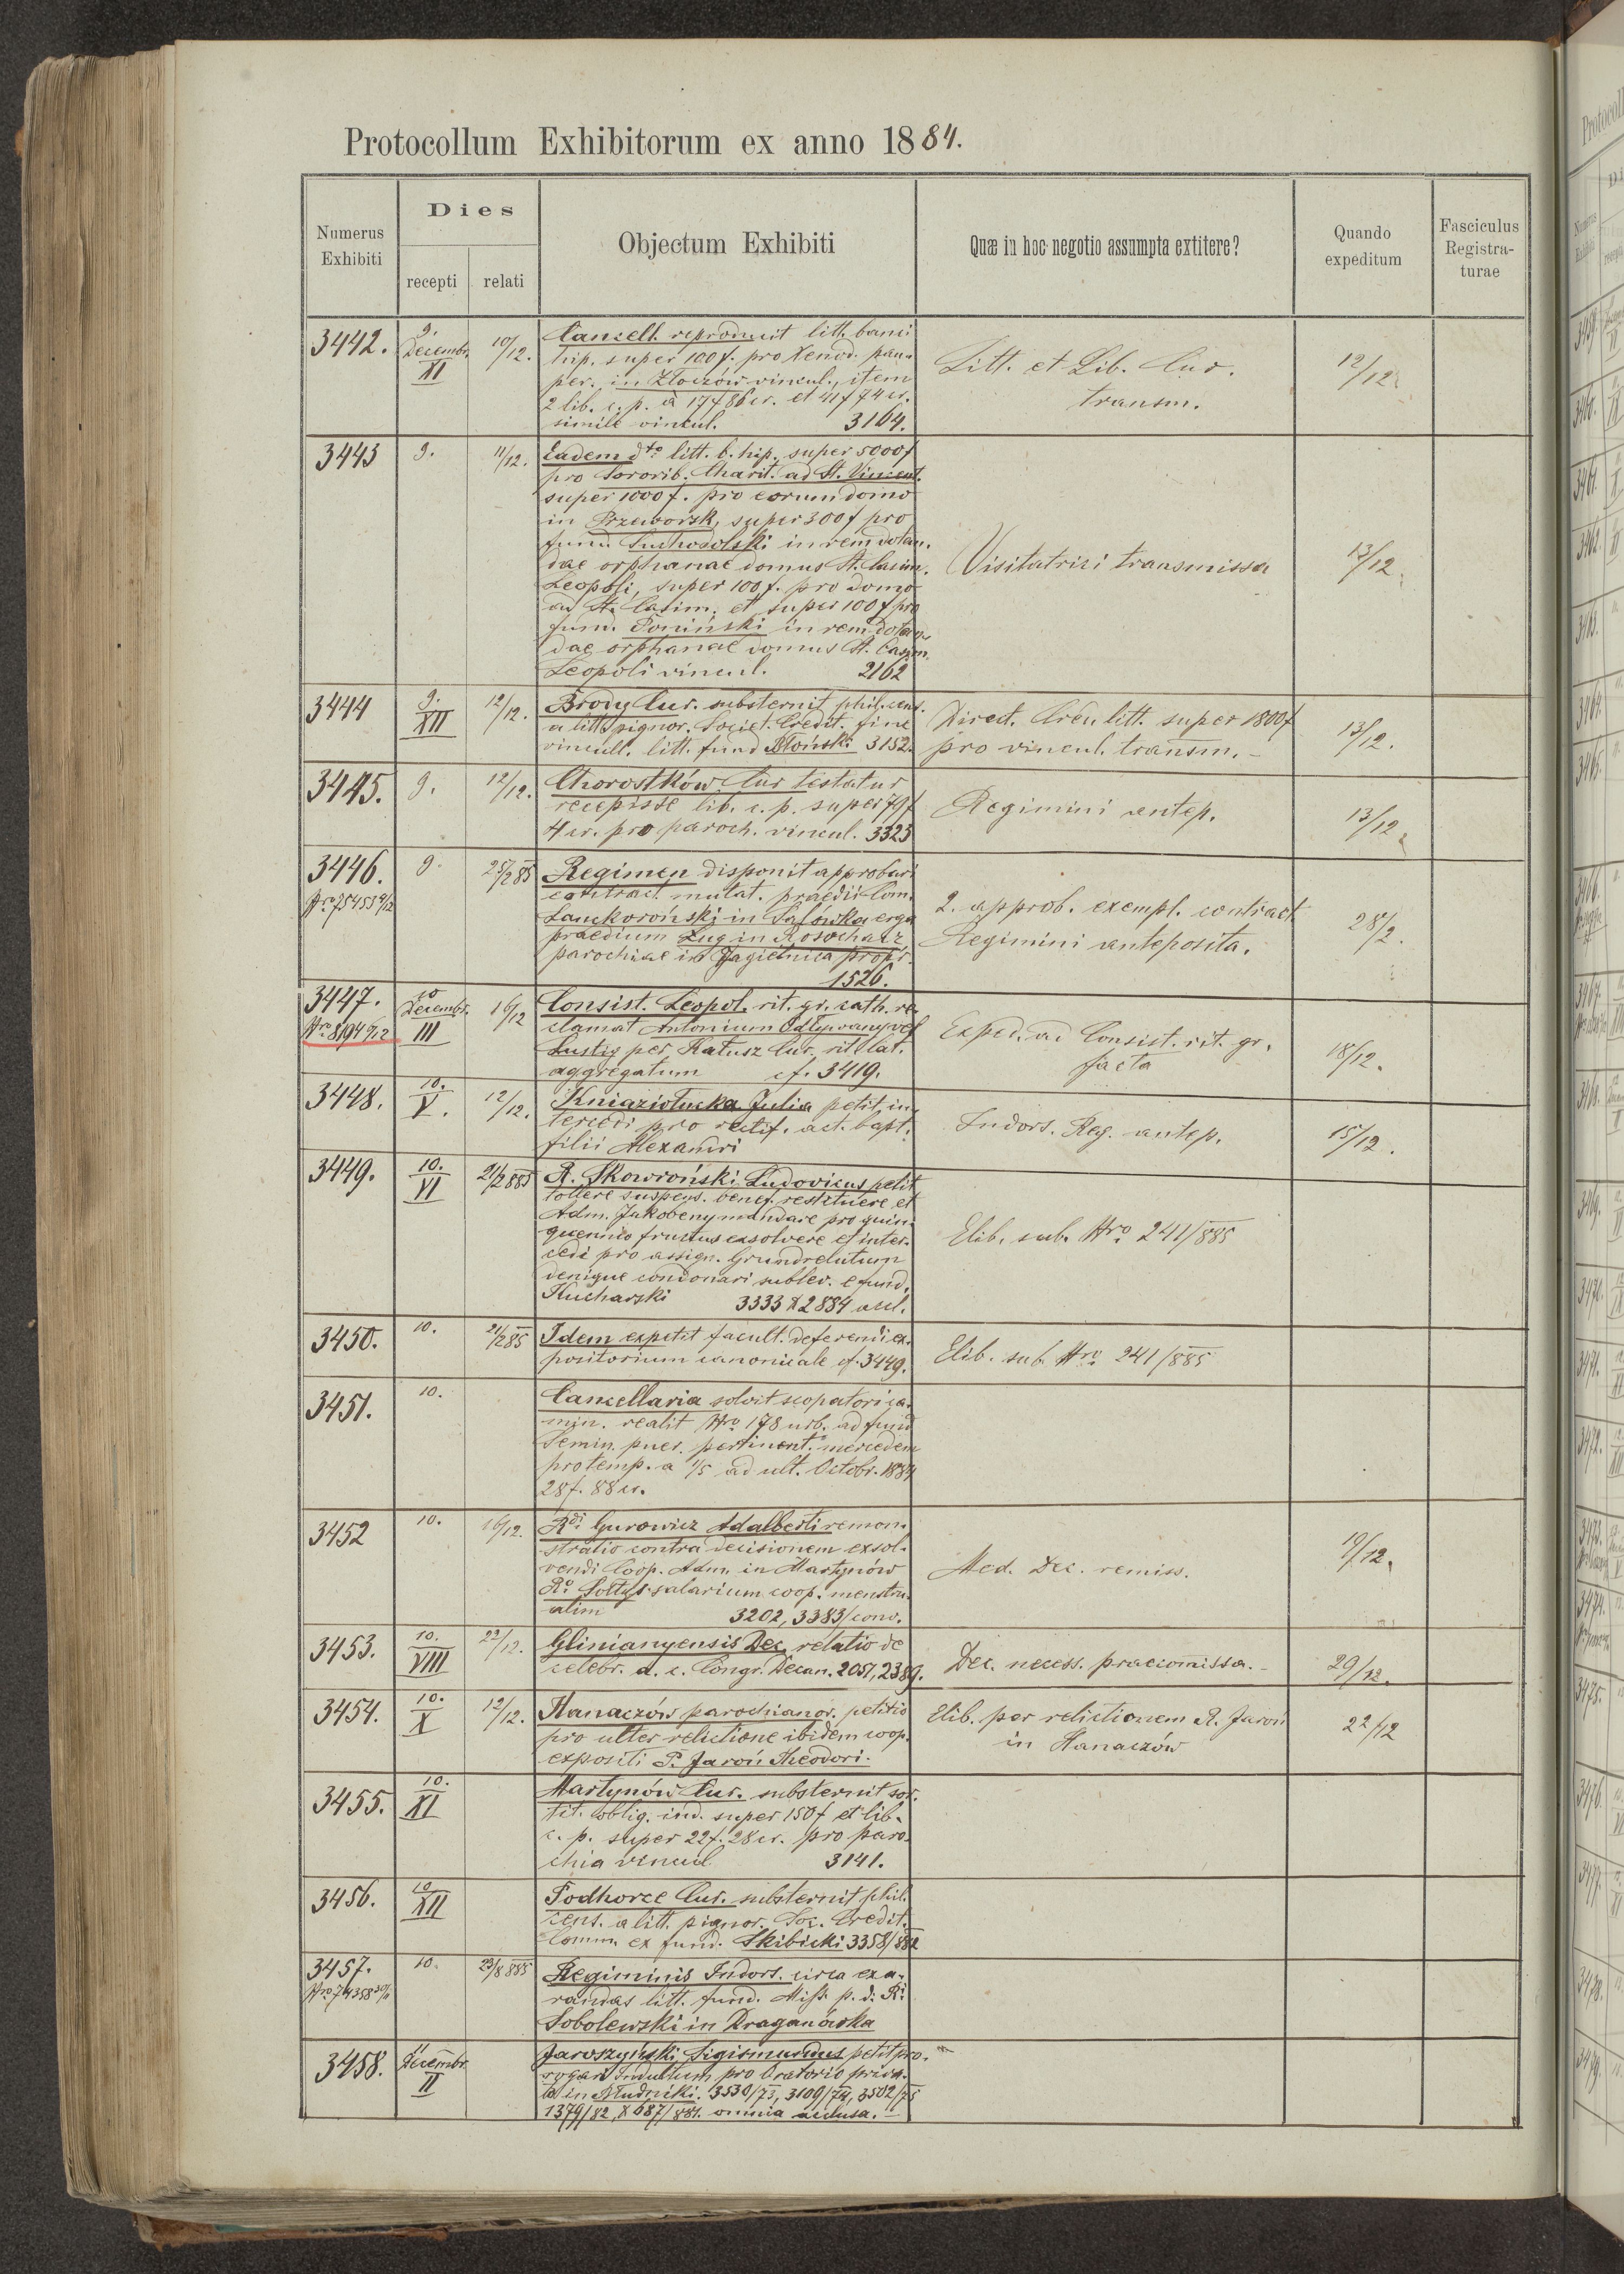 Protocollum Exhibitorum ex anno 1884.
Numerus Exhibiti
Dies
recepti
relati
Objectum Exhibiti
Quæ in hoc negotio assumpta extitere?
Quando expeditum
Fasciculus Registra-
turae
3442.
9. Decembr. XI
10/12.
Cancell. reproducit litt. banci
hip. super 100 f. pro Xenod. pau-
per. in Złoczów vincul., item
2 lib. c. p. à 17 f 86 cr. et 41 f 74 cr.
simile vincul. 3164.
Litt. et Lib. Cur.
transm.
12/12
3443
9.
11/12.
Eadem dto litt. b. hip. super 5000 f
pro Sororib. Charit. ad St. Vincent.
super 1000 f. pro earum domo
in Przeworsk, super 300 f pro
fund. Suchodolski in rem dotan-
dae orphanae domus St. Casim.
Leopoli, super 100 f. pro domo
ad St. Casim. et super 100 f pro
fund. Poniński in rem dotan-
dae orphanae domus St. Casim.
Leopoli vincul. 2162
Visitatrici transmissa
13/12.
3444
9. XII
12/12.
Brody Cur. substernit phil. cens.
a litt. pignor. Societ. Credit. fine
vincul. litt. fund Błoński 3152.
Direct. Cred. litt. super 1800 f
pro vincul. transm.
13/12.
3445.
9.
12/12.
Chorostków Cur testatur
recepisse lib. c. p. super 79 f
4 cr. pro paroch. vincul. 3323
Regimini antep.
13/12
3446.
9.
25/2 85
Nro 75453 9/12
Regimen disponit approbari
contract. mutat. praedii Com.
Lanckoroński in Sasowka erga
praedium Ług in Rosochacz
parochiae in Jagielnica propr.
1526.
2. approb. exempl. contract.
Regimini anteposita.
28/2.
3447.
10 Decembr. III
16/12
Nro 8194
Consist. Leopol. rit. gr. cath. re-
clamat Antonium Odływany vel
Lustig per Ratusz Cur. rit. lat.
aggregatum cf. 3419.
Exped. ad Consist. rit. gr.
facta
18/12.
3448.
10. V.
12/12.
Kniaziołucka Julia petit in-
tercedi pro rectif. act. bapt.
filii Alexandri
Indors. Reg. antep.
15/12.
3449.
10. VI
21/2 885
R. Skowroński Ludovicus petit
tollere suspens. benef. restituere et
Adm. Jakobeny mandare pro quin-
quennio fructus exsolvere et inter-
cedi pro assign. Grundrelutum
denique condonari sublev. e fund.
Kucharski 3333 & 2884 acl.
Elib. sub. Nro 241/885
3450.
10.
21/2 85
Idem expetit facult. deferendi ex-
positorium canonicale cf. 3449.
Elib. sub. Nro 241/885
3451.
10.
Cancellaria solvit scopatori ca-
min. realit Nro 178 urb. ad fund
Semin. puer. pertinent. mercedem
pro temp. a 1/5 ad ult. Octobr. 1884
28 f. 88 cr.
3452
10.
16/12.
Rdi Gurowicz Adalberti remon-
stratio contra decisionem exsol-
vendi Coop. Adm. in Martynów
Ro Sołtys salarium coop. menstru-
atim 3202, 3383/conv.
Med. Dec. remiss.
19/12.
3453.
10. VIII
22/12.
Glinianyensis Dec. relatio de
celebr. a. c. Congr. Decan. 2051, 2389.
Dec. necess. praecomissa.
29/12.
3454.
10. X
12/12.
Hanaczów parochianor. petitio
pro ulter relictione ibidem coop.
expositi P. Jaroń Theodori.
Elib. per relictionem R. Jaroń
in Hanaczów
22/12
3455.
10. XI
Martynów Cur. substernit sor-
tit. oblig. ind. super 150 f et lib.
c. p. super 22 f. 28 cr. pro paro-
chia vincul 3141.
3456.
10 XII
Podhorce Cur. substernit phil.
cens. a litt. pignor. Soc. Credit.
Comm. ex fund. Skibicki 3358/882
3457.
10.
23/8 885
Nro 74358
Regiminis Indors. circa exa-
randas litt. fund. Miss. p. d. Ri
Sobolewski in Draganówka
3458.
11 Decembr. II
Jaroszyński Sigismundus petit pro-
rogari Indultum pro Oratorio priva-
to in Błudniki. 3530/73, 3109/74, 3502/75
1379/82, & 687/881. omnia acclusa.